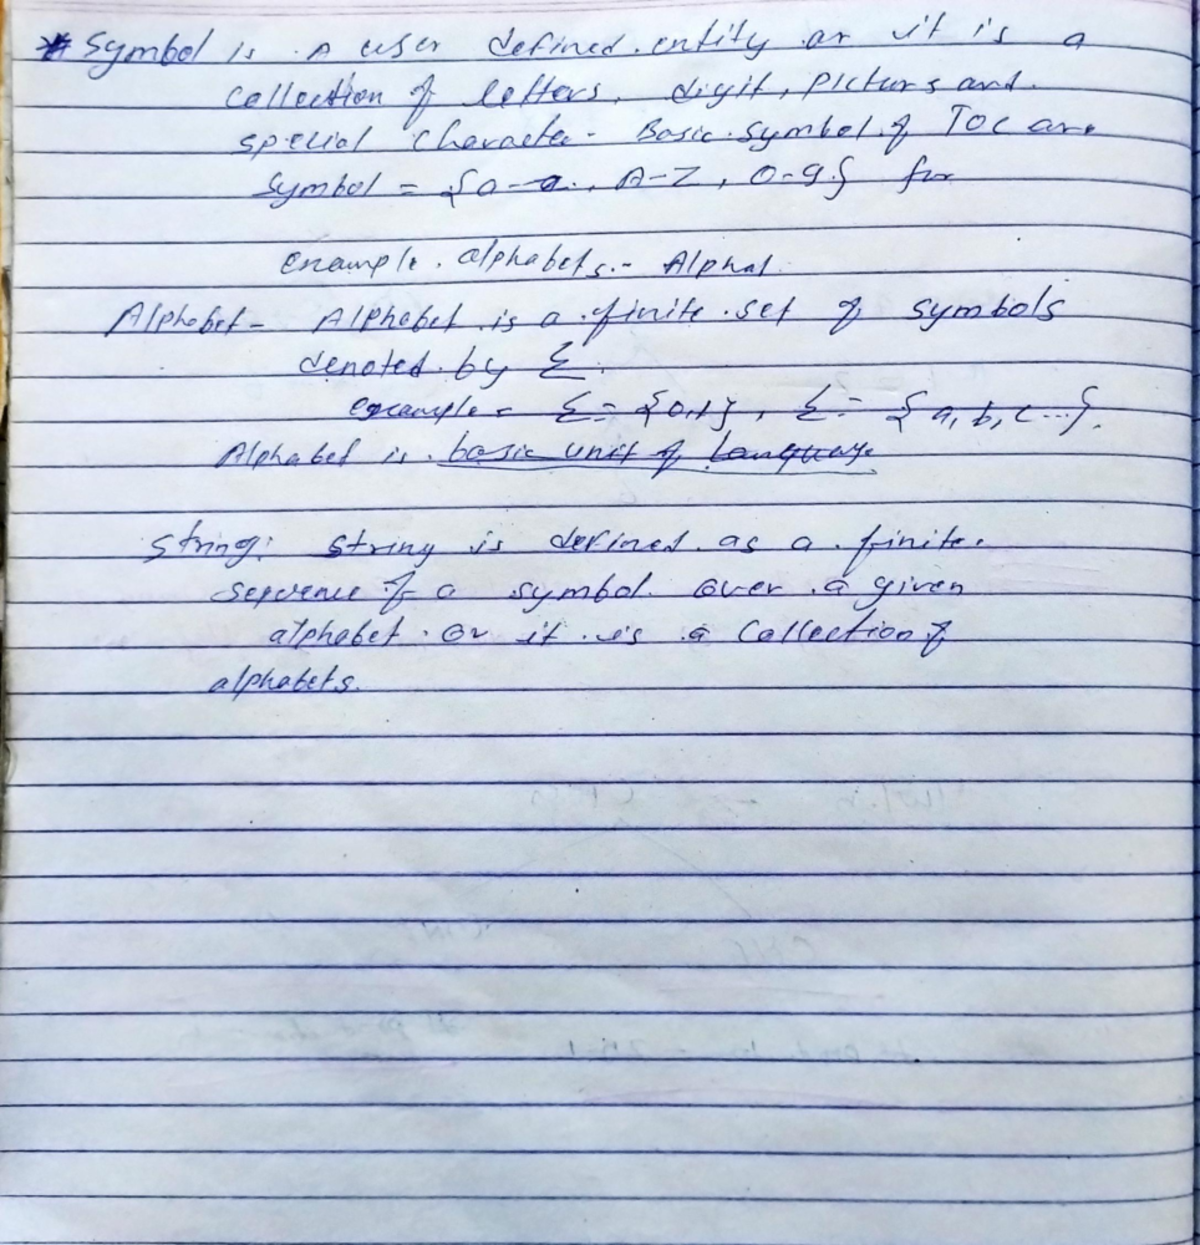 * Symbol is A user defined entity or it is a
collection of letters, digit, picturs and
special character - Basic symbol of TOC are
Symbol = {a-a, A-Z, 0-9} for
example. alphabets.- Alphat
Alphabet- Alphabet is a finite set of symbols
denoted by Σ.
example = Σ = {0,1}, Σ = {a, b, c ...}.
Alphabet is basic unit of language
String: String is defined as a finite
sequence of a symbol over a given
alphabet. Or it is a Collection of
alphabets.